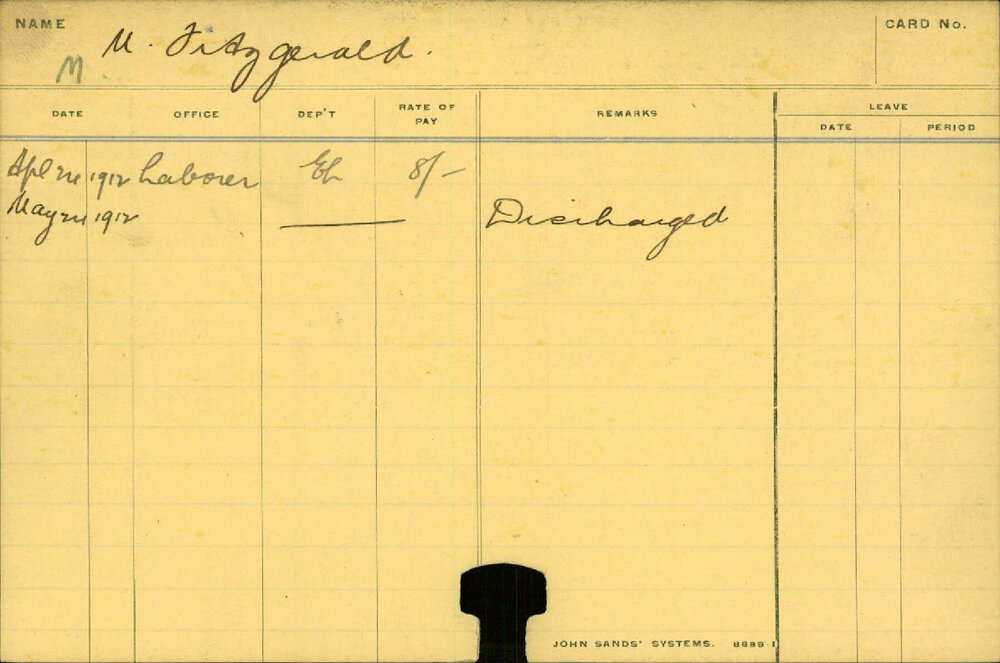 NAME M. Fitzgerald. CARD No.
M
DATE OFFICE DEP'T RATE OF PAY REMARKS LEAVE
DATE PERIOD
Apl 24 1912 Laborer 8/-
May 24 1912 Discharged
JOHN SANDS' SYSTEMS. 8689-1